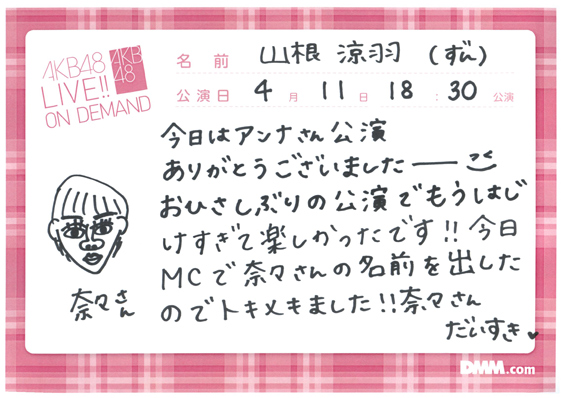 AKB48
LIVE!!
ON DEMAND
AKB
48
名前 山根 涼羽 (ずん)
公演日 4月 11日 18:30 公演
今日はアンナさん公演
ありがとうございましたー
おひさしぶりの公演でもうはじ
けすぎて楽しかったです!!今日
MCで奈々さんの名前を出した
のでトキメキました!!奈々さん
だいすき♥
奈々さん
DMM.com